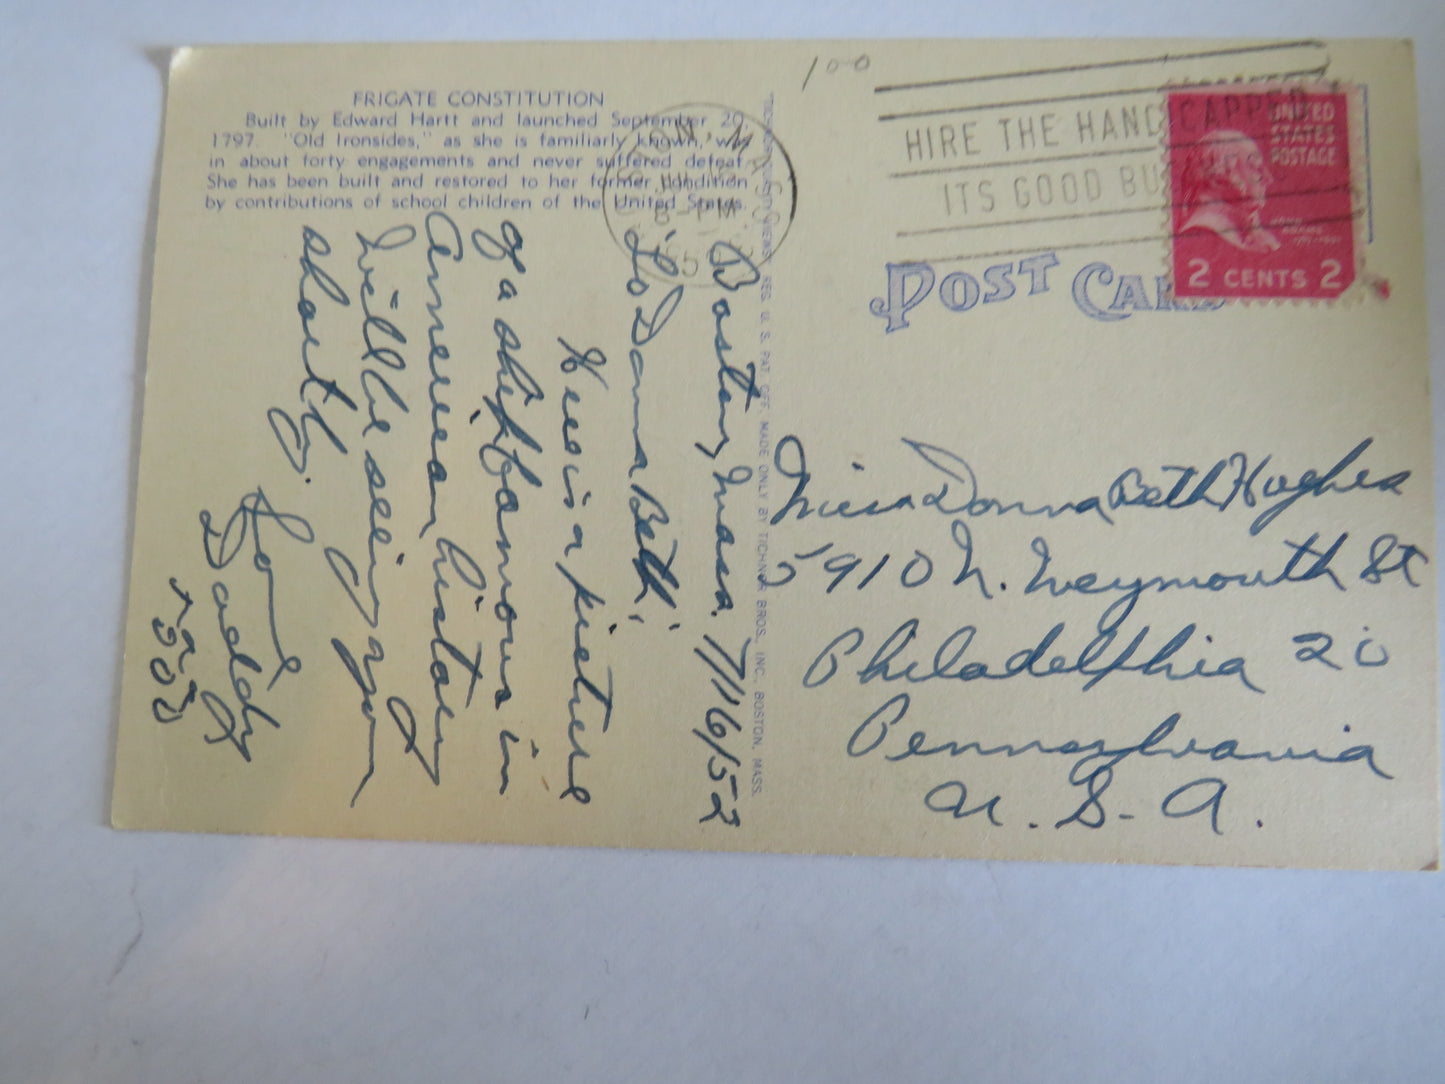 FRIGATE CONSTITUTION
Built by Edward Hartt and launched September 20,
1797. "Old Ironsides," as she is familiarly known, was
in about forty engagements and never suffered defeat.
She has been built and restored to her former condition
by contributions of school children of the United States.
Boston, Mass. 7/16/52
To Donna Beth,
Here is a picture
of a ship famous in
American history
Will be seeing you
shortly.
Love
Daddy
"TICHNOR QUALITY VIEWS," REG. U. S. PAT. OFF. MADE ONLY BY TICHNOR BROS., INC., BOSTON, MASS.
100
HIRE THE HANDICAPPED
ITS GOOD BU
UNITED
STATES
POSTAGE
JOHN
ADAMS
2 CENTS 2
POST CARD
Miss Donna Beth Hughes
5910 N. Weymouth St
Philadelphia 20
Pennsylvania
U. S. A.